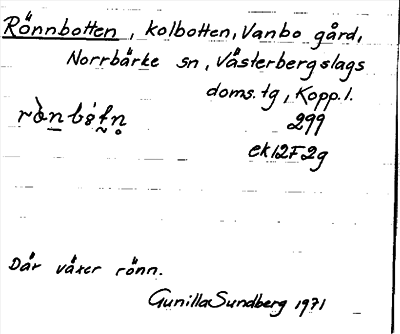 Rönnbotten, kolbotten, Vanbo gård,
Norrbärke sn, Västerbergslags
doms. tg, Kopp. l.
299
ek 12F2g
Där växer rönn.
Gunilla Sundberg 1971